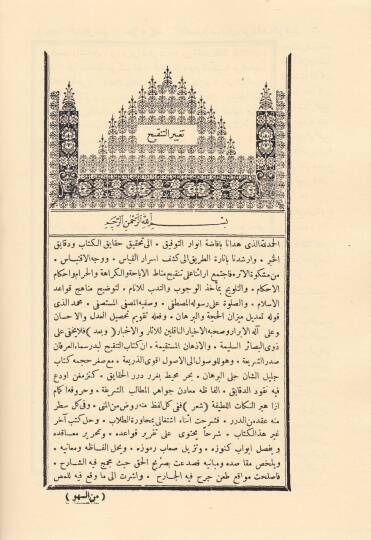 تغيير التنقيح
بسم الله الرحمن الرحيم
الحمد لله الذى هدانا بافاضة انوار التوفيق • الى تحقيق حقايق الكتاب ودقايق
الخبر • وارشدنا بانارة الطريق الى كشف اسرار القياس • ووجه الاقتباس •
من مشكوة الاثر • فاجتمع اراءنا على تنقيح مناط الاباحة والكراهة والحرام واحكام
الاحكام • والتلويح بمأخذ الوجوب والندب للانام • لتوضيح مناهج قواعد
الاسلام • والصلوة على رسوله المصطفى • وصفيه المصفى المستصفى • محمد الذى
قوله تعديل ميزان الحجة والبرهان • وفعله تقويم تحصيل العدل والاحسان
وعلى آله الابرار وصحبه الاخيار الناقلين للاثار والاخبار ( وبعد ) فلا يخفى على
ذوى البصائر السليمة • والاذهان المستقيمة • ان كتاب التنقيح لمدرسة العرفان
صدر الشريعة • وهو للوصول الى الاصول اقوى الذريعة • مع صغر حجمه كتاب
جليل الشان جلى البرهان • بحر محيط بغرر درر الحقايق • كنز مغن اودع
فيه نقود الدقايق • الفاظه معادن جواهر المطالب الشريفة • وحروفه اكمام
ازاهير النكات اللطيفة ( شعر ) ففى كل لفظ منه روض من المنى • وفى كل سطر
منه عقد من الدرر • فشرحت اثناء اشتغالى بمحاورة الطلاب • وحل كتب آخر
غير هذا الكتاب • شرحا يحتوى على تقرير قواعده • وتحرير معاقده
و يفصل ابواب كنوزه • وتزيل صعاب رموزه • ويحل الفاظه ومعانيه •
ويلخص مقاصده ومبانيه فصدعت بصريح الحق حيث جمجم فيه الشارح •
فاصلحت مواقع طعن جرح فيه الجارح • واشرت الى ما وقع فيه للمص
( من السهو )